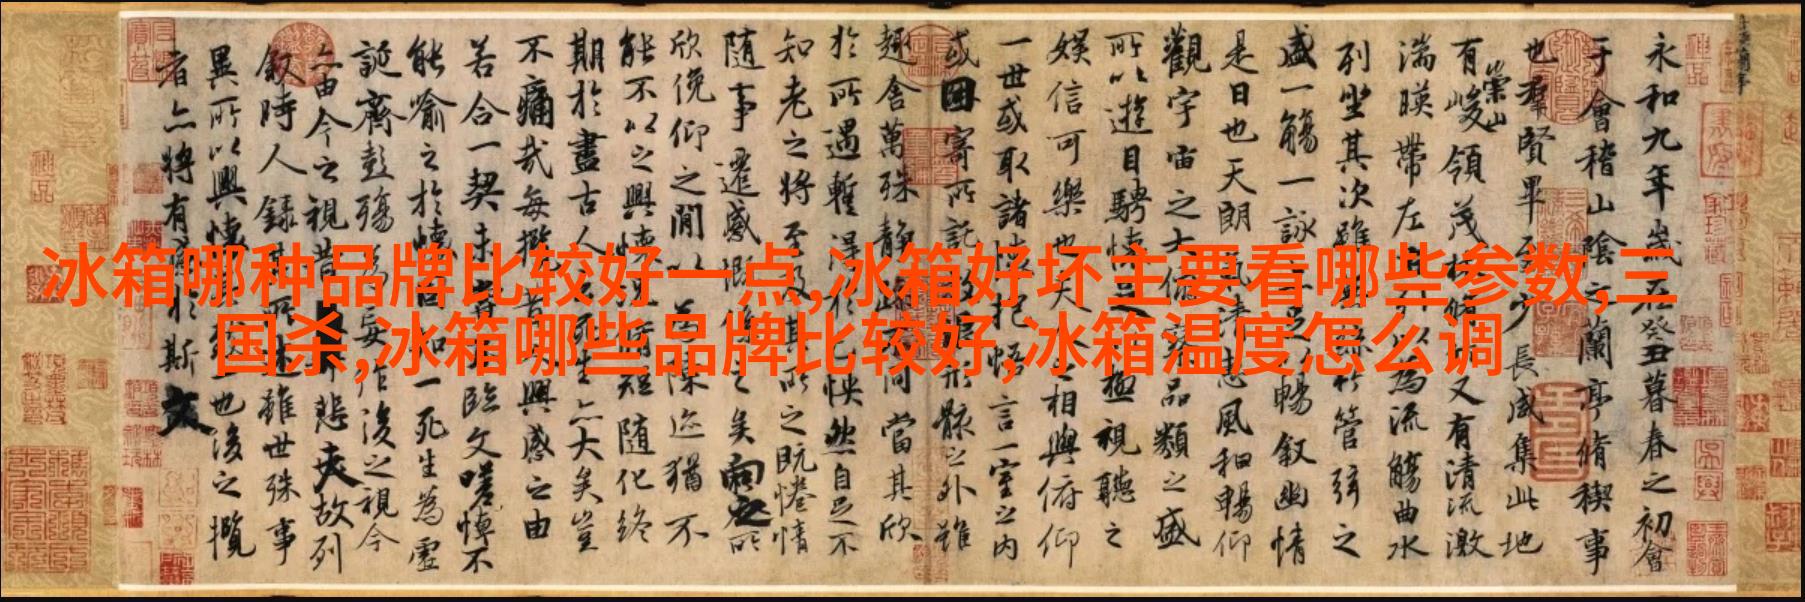 冰箱哪种品牌比较好一点,冰箱好坏主要看哪些参数,三
国杀,冰箱哪些品牌比较好,冰箱温度怎么调
永和九年歲在癸丑暮春之初會
于會稽山陰之蘭亭脩稧事
也羣賢畢至少長咸集此地
有崇山峻領茂林脩竹又有清流激
湍暎帶左右引以為流觴曲水
列坐其次雖無絲竹管弦之
盛一觴一詠亦足以暢叙幽情
是日也天朗氣清惠風和暢仰
觀宇宙之大俯察品類之盛
所以遊目騁懷足以極視聽之
娛信可樂也夫人之相與俯仰
一世或取諸懷抱悟言一室之內
或因寄所託放浪形骸之外雖
趣舍萬殊靜躁不同當其欣
於所遇暫得於己怏然自足不
知老之將至及其所之既惓情
隨事遷感慨係之矣向之所
欣俛仰之閒以為陳迹猶不
能不以之興懷況脩短隨化終
期於盡古人云死生亦大矣豈
不痛哉每攬昔人興感之由
若合一契未嘗不臨文嗟悼不
能喻之於懷固知一死生為虛
誕齊彭殤為妄作後之視今
亦由今之視昔悲夫故列
叙時人錄其所述雖世殊事
異所以興懷其致一也後之攬
者亦將有感於斯文